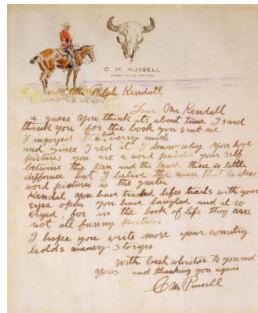 C. M. RUSSELL
Mr Ralph Kendall
Dear Mr Kendall
I guess you think its about time I said
thank you for the book you sent me
I injoyed it very much
and since I red it I know why. You love
pictures you are a word painter your self
betwine the pen and the brush there is little
diffrence but I belive the man that makes
word pictures is the greater
Kendal you have trailed lifes trails with your
eyes open you have laughed and al so
cryed for in the book of life they are
not all funny pictures
I hope you write more your country
holds maney storyes
With best whishes to you and
yours and thanking you again
C M Russell